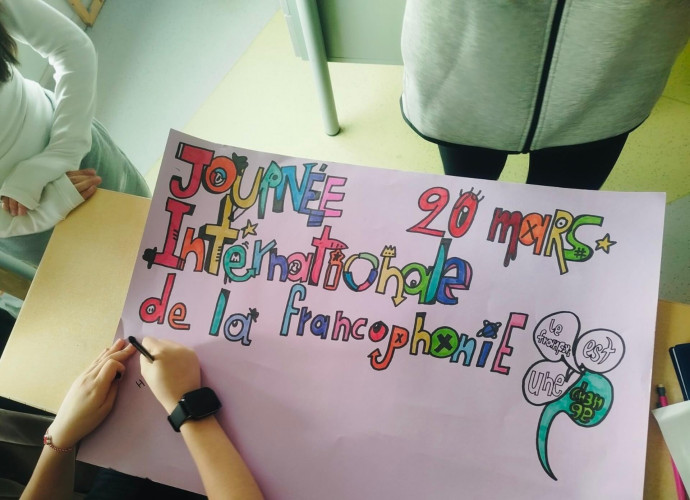 JOURNÉE 20 mARS
Internationale
de la francophonie
le
français
est
une
H